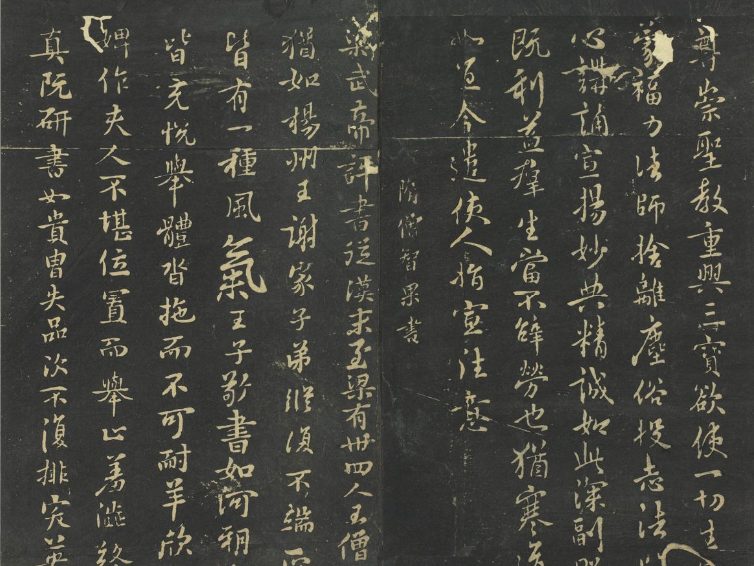 尊崇聖教重興三寶欲使一切生
蒙福力法師捨離塵俗投志法門
心講誦宣揚妙典精誠如此深副
既利益羣生當不辭勞也猶寒
宜今遣使人指宣往意
隋僧智果書
梁武帝評書從漢末至梁有卅四人王僧
猶如揚州王謝家子弟縱復不端
皆有一種風氣王子敬書如河朔
皆充悅舉體沓拖而不可耐羊欣
婢作夫人不堪位置而舉止羞澀終
真阮研書如貴胄失品次不復排突英